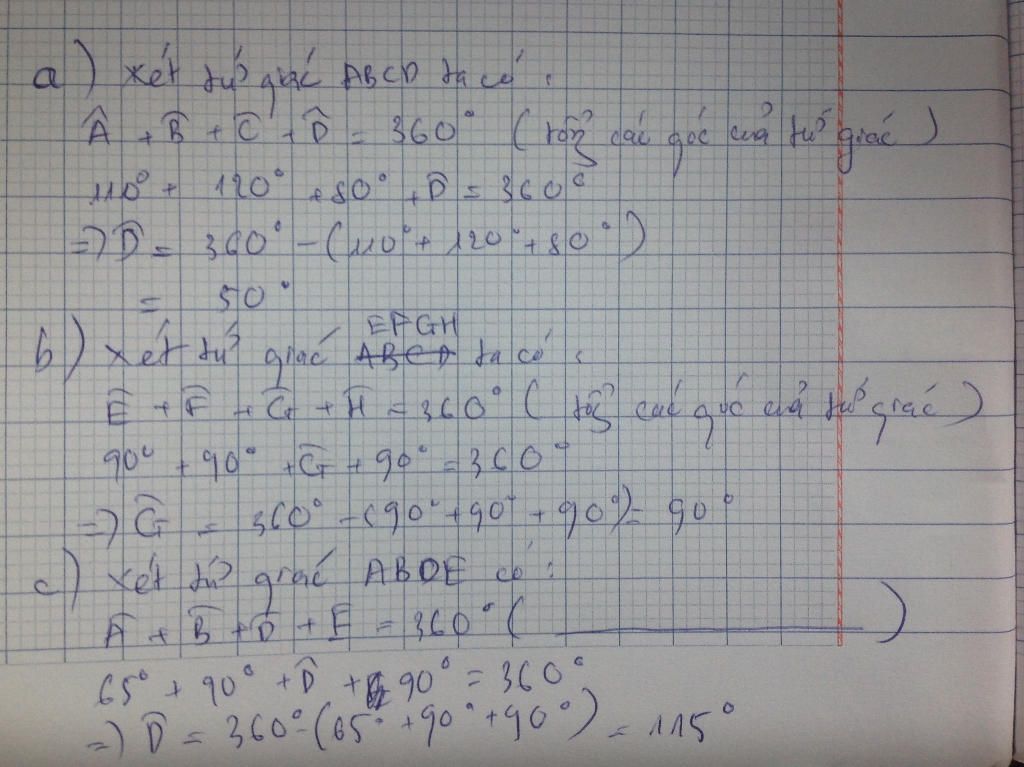 a) Xét tứ giác ABCD ta có :
Â + B̂ + Ĉ + D̂ = 360° ( tổg các góc của tứ giác )
110° + 120° + 80° + D̂ = 360°
=> D̂ = 360° - (110° + 120° + 80° )
= 50°
b) Xét tứ giác EFGH ta có :
Ê + F̂ + Ĝ + Ĥ = 360° ( tổg các góc của tứ giác )
90° + 90° + Ĝ + 90° = 360°
=> Ĝ = 360° - (90° + 90° + 90°) = 90°
c) Xét tứ giác ABDE có :
Â + B̂ + D̂ + Ê = 360° ( ______ )
65° + 90° + D̂ + 90° = 360°
=> D̂ = 360° - (65° + 90° + 90° ) = 115°